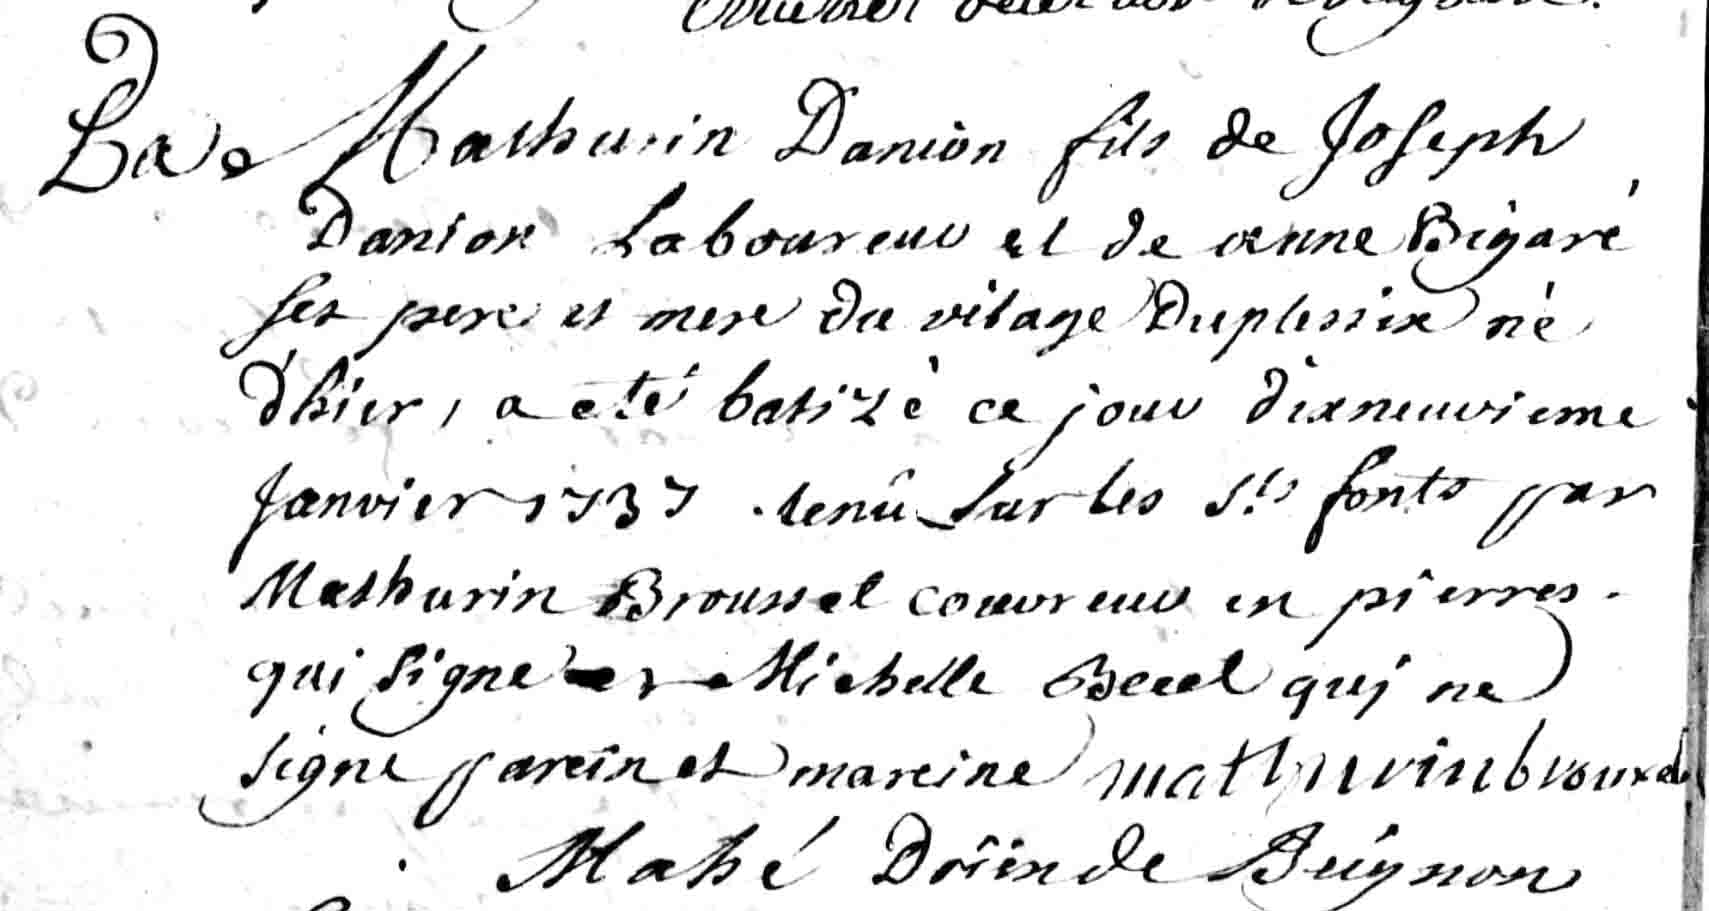 Ba. Mathurin Danion fils de Joseph
Danion Laboureur et de anne Bigaré
ses pere et mere du vilage Duplessix né
d'hier, a eté batizé ce jour dixneuvieme
Janvier 1737 tenû sur les Sts fonts par
Mathurin Broussel couvreur en pierres.
qui signe et Michelle Becel quj ne
signe parein et mareine mathurin brouxel
Mahé Doiien de Beignon